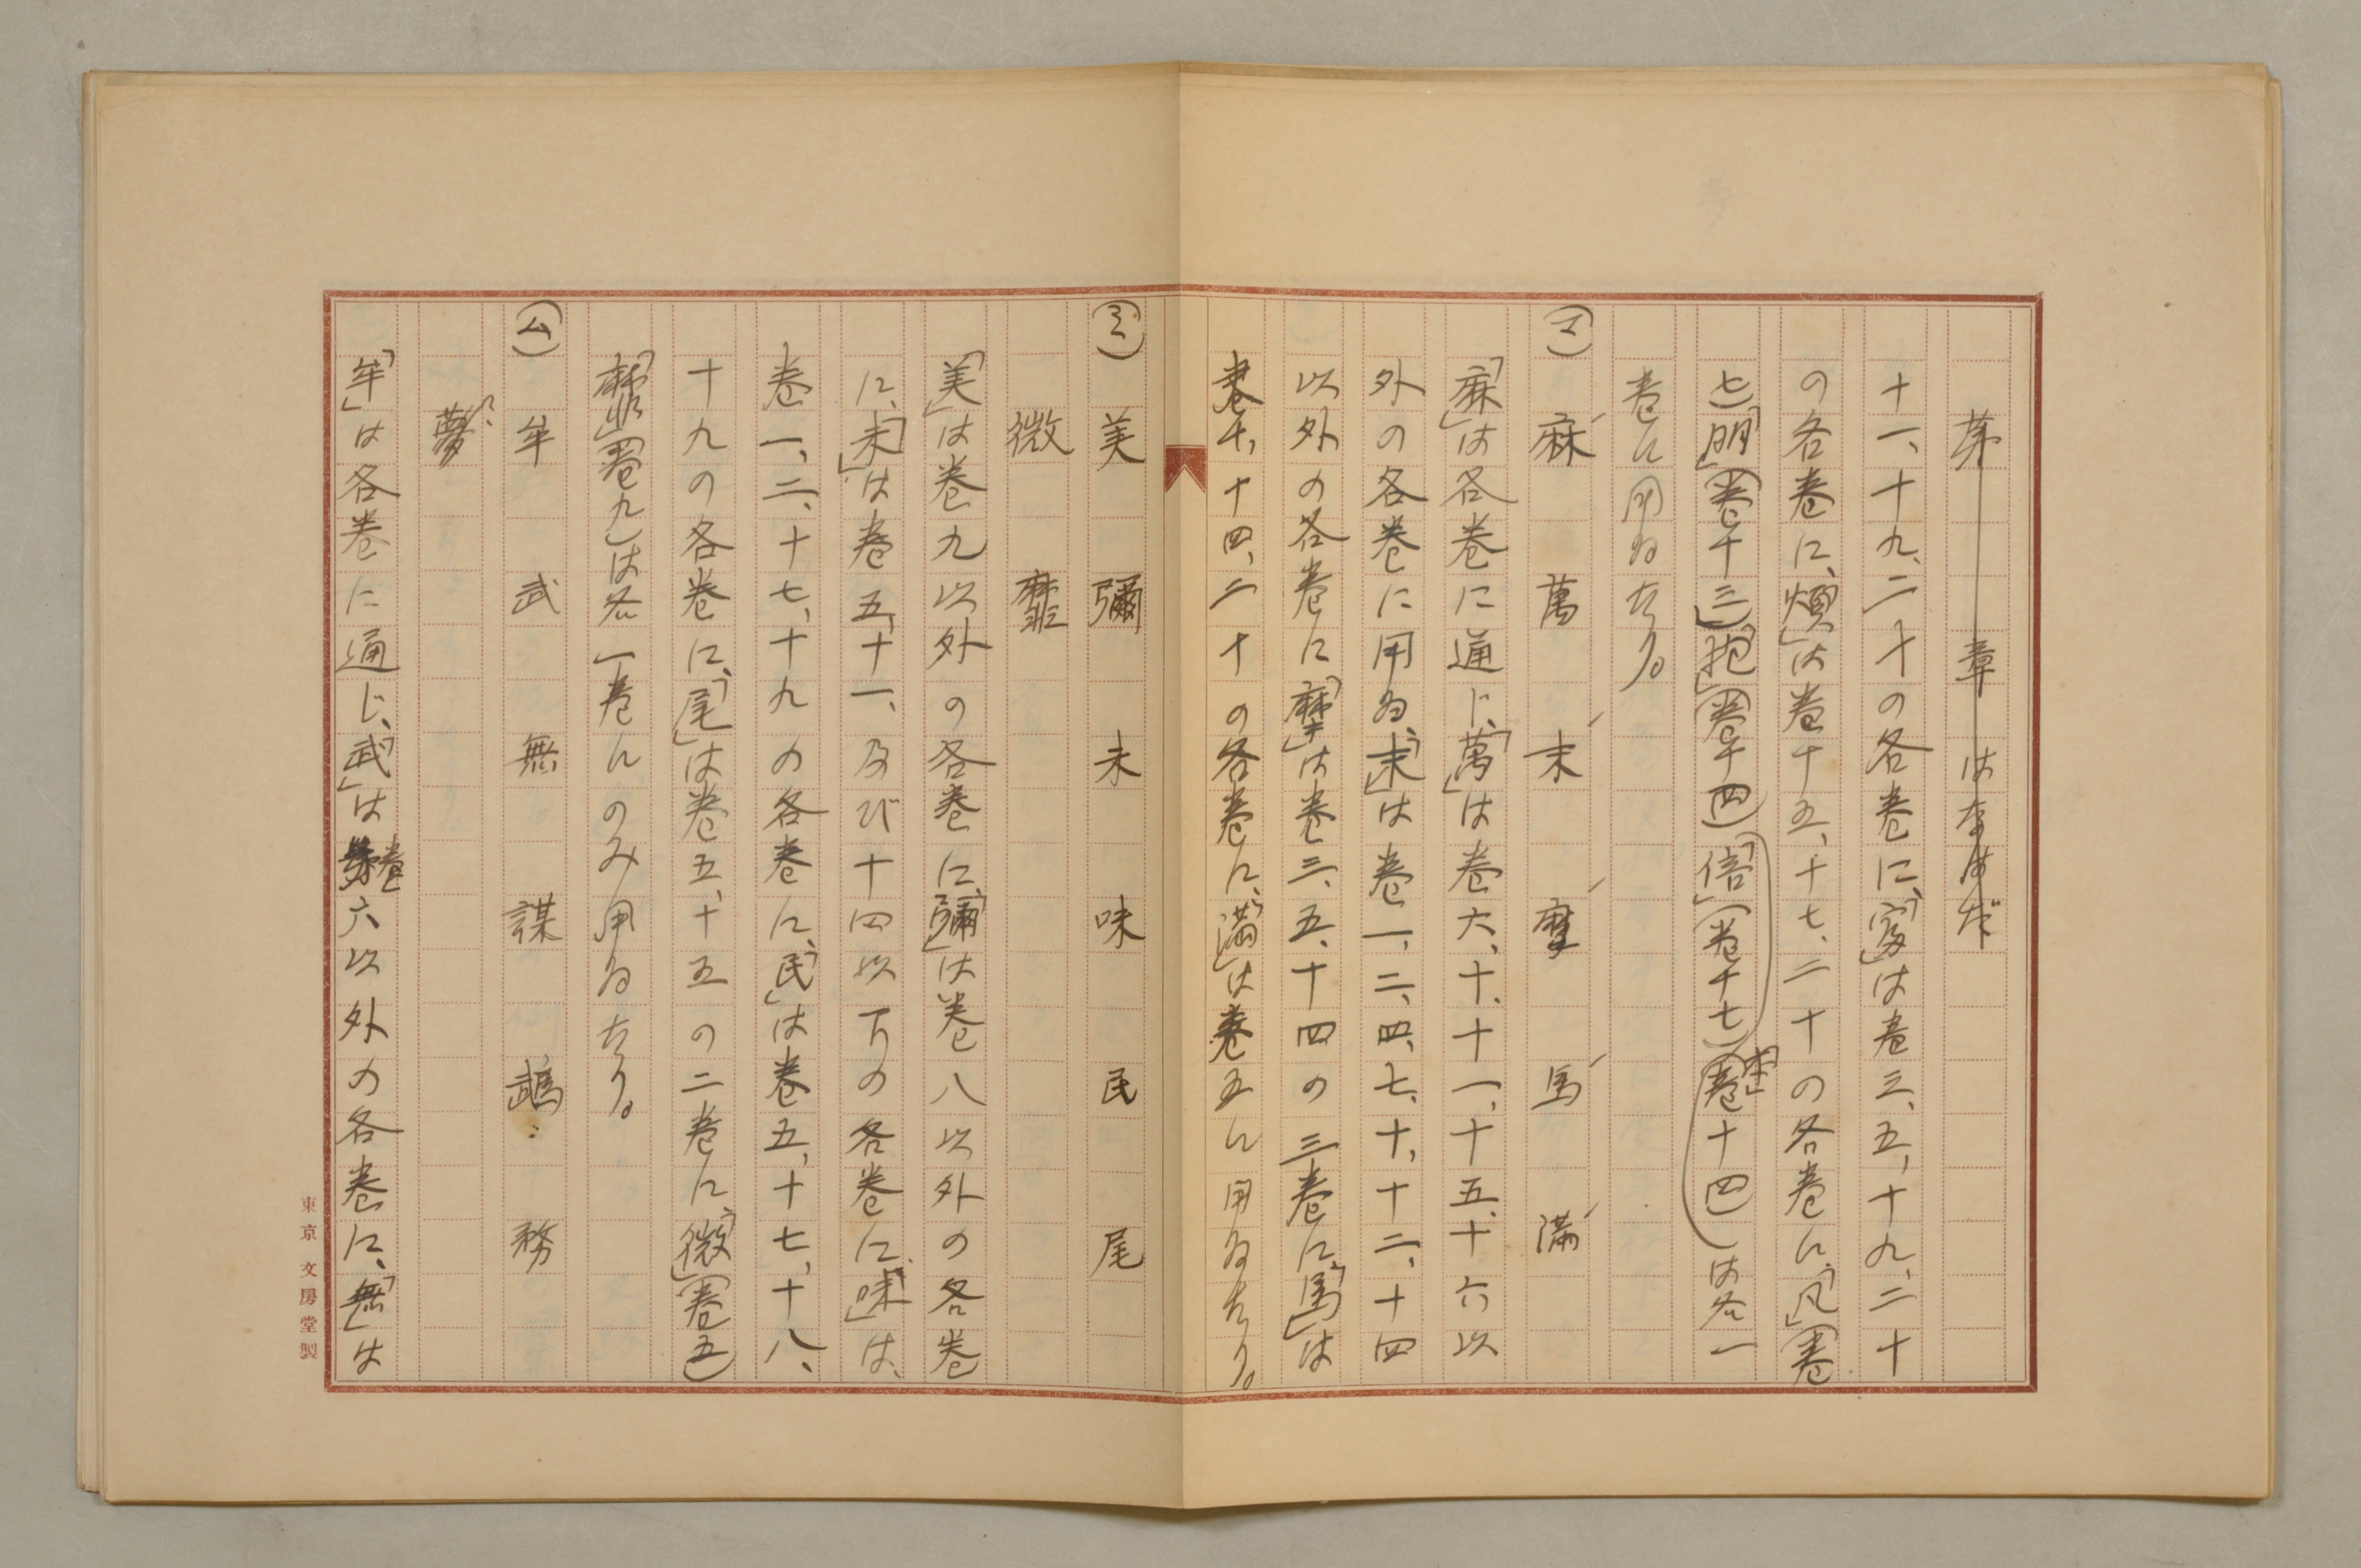 第　章　はなはだ
十一、十九、二十の各巻に、「富」は巻三、五、十九、二十
の各巻に、「煩」は巻十五、十七、二十の各巻に、「凡」（巻
七）「朋」（巻十三）「抱」（巻十四）「倍」（巻十七）（巻十四）は各一
巻に用ゐたり。
（マ）　麻　萬　末　摩　馬　満
「麻」は各巻に通じ、「萬」は巻六、十、十一、十五、十六以
外の各巻に用ゐ、「末」は巻一、二、四、七、十、十二、十四
以外の各巻に「摩」は巻三、五、十四の三巻に、「馬」は
巻十、十四、二十の各巻に、「満」は巻五に用ゐたり。
（ミ）　美　彌　未　味　民　尾
微　靡
「美」は巻九以外の各巻に、「彌」は巻八以外の各巻
に、「未」は巻五、十一、及び十四以下の各巻に、「味」は、
巻一、二、十七、十九の各巻に、「民」は巻五、十七、十八、
十九の各巻に、「尾」は巻五、十五の二巻に、「微」（巻五）
「靡」（巻九）は各一巻にのみ用ゐたり。
（ム）　牟　武　無　謀　鵡　務
夢
「牟」は各巻に通じ、「武」は巻六以外の各巻に、「無」は
東京文房堂製